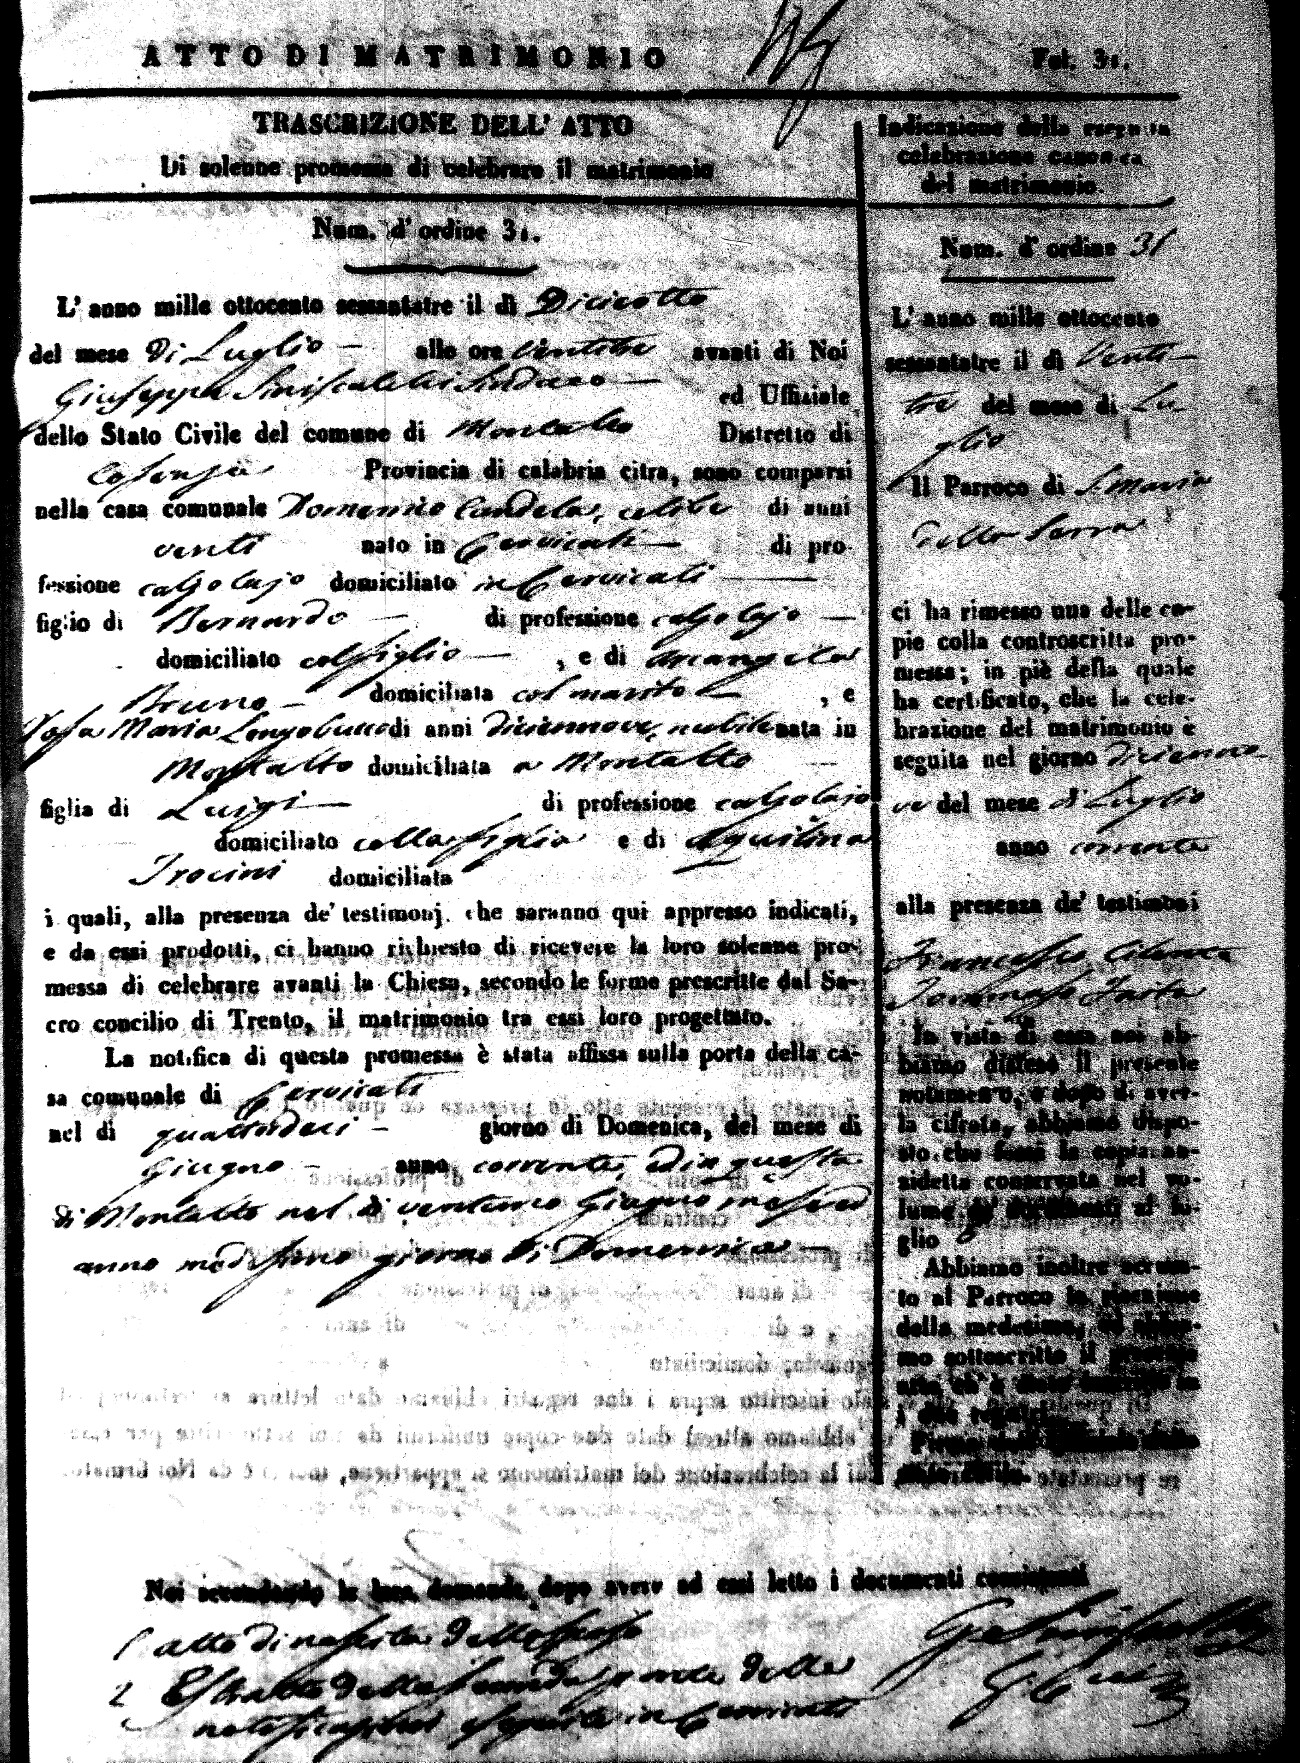 ATTO DI MATRIMONIO
Fol. 31.
TRASCRIZIONE DELL' ATTO
Di solenne promessa di celebrare il matrimonio
Num. d' ordine 31.
L' anno mille ottocento sessantatre il dì Diciotto
del mese di Luglio — alle ore ventitre avanti di Noi
Giuseppe Siniscalchi Sindaco — ed Uffiziale
dello Stato Civile del comune di Montalto Distretto di
Cosenza Provincia di calabria citra, sono comparsi
nella casa comunale Domenico Candela, celibe di anni
venti nato in Cervicati — di pro-
fessione calzolajo domiciliato in Cervicati —
figlio di Bernardo — di professione calzolajo —
domiciliato col figlio — , e di Arcangela
Bruno — domiciliata col marito — , e
Rosa Maria Longobucco di anni diciannove, nubile nata in
Montalto domiciliata a Montalto —
figlia di Luigi — di professione calzolaio
domiciliato colla figlia e di Aquilina
Trocini domiciliata
i quali, alla presenza de' testimonj che saranno qui appresso indicati,
e da essi prodotti, ci hanno richiesto di ricevere la loro solenne pro-
messa di celebrare avanti la Chiesa, secondo le forme prescritte dal Sa-
cro concilio di Trento, il matrimonio tra essi loro progettato.
La notifica di questa promessa è stata affissa sulla porta della ca-
sa comunale di Cervicati
nel dì quattordici — giorno di Domenica, del mese di
Giugno — anno corrente, ed in questa
di Montalto nel dì ventuno Giugno mese ed
anno medesimo giorno di Domenica —
Noi secondando la loro domanda, dopo avere ad essi letto i documenti consistenti
1 atto di nascita dello sposo
2 Estratto della seconda parte delle
notificazioni eseguite in Cervicati
Indicazione della seguita
celebrazione canonica
del matrimonio.
Num. d' ordine 31
L' anno mille ottocento
sessantatre il dì Venti-
tre del mese di Lu-
glio
Il Parroco di S. Maria
della Serra
ci ha rimesso una delle co-
pie colla controscritta pro-
messa; in piè della quale
ha certificato, che la cele-
brazione del matrimonio è
seguita nel giorno dicianno-
ve del mese di Luglio
anno corrente
alla presenza de' testimoni
Francesco Cilento
Tommaso
In vista di essa noi ab-
biamo disteso il presente
notamento, e dopo di aver-
la cifrata, abbiamo dispo-
sto che fosse la copia an-
zidetta conservata nel vo-
lume de' documenti al fo-
glio
Abbiamo inoltre accusa-
to al Parroco la ricezione
della medesima, ed abbia-
mo sottoscritto il presente
atto ch' è stato inscritto su
i due registri.